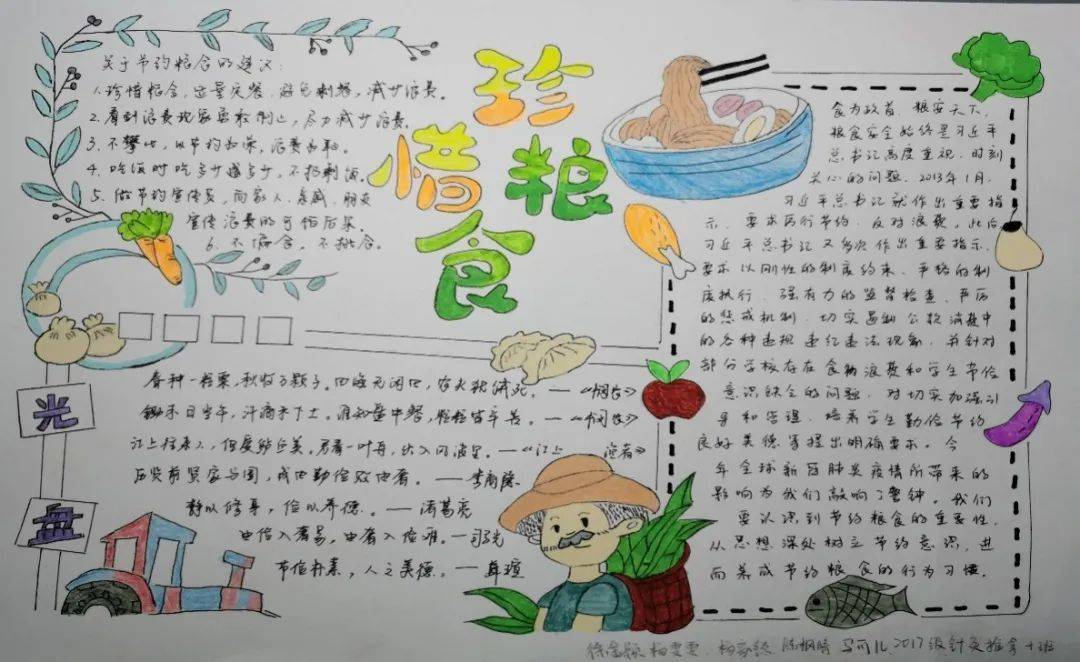 关于节约粮食的建议:
1.珍惜粮食,适量定餐,避免剩餐,减少浪费。
2.看到浪费现象要及时制止,尽力减少浪费。
3.不攀比,以节约为荣,浪费为耻。
4.吃饭时吃多少盛多少,不扔剩饭。
5.做节约宣传员,向家人、亲戚、朋友
宣传浪费的可怕后果。
6.不偏食,不挑食。
珍
惜粮
食
光
盘
春种一粒粟,秋收万颗子。四海无闲田,农夫犹饿死。—《悯农》
锄禾日当午,汗滴禾下土。谁知盘中餐,粒粒皆辛苦。—《悯农》
江上往来人,但爱鲈鱼美。君看一叶舟,出入风波里。—《江上渔者》
历览前贤家与国,成由勤俭败由奢。——李商隐
静以修身,俭以养德。——诸葛亮
由俭入奢易,由奢入俭难。—司马光
节俭朴素,人之美德。—薛瑄
食为政首,粮安天下,
粮食安全始终是习近平
总书记高度重视、时刻
关心的问题。2013年1月,
习近平总书记就作出重要指
示,要求厉行节约、反对浪费。此后,
习近平总书记又多次作出重要指示,
要求以刚性的制度约束、严格的制
度执行、强有力的监督检查、严厉
的惩戒机制,切实遏制公款消费中
的各种违规违纪违法现象,并针对
部分学校存在食物浪费和学生节俭
意识缺乏的问题,对切实加强引
导和管理,培养学生勤俭节约
良好美德等提出明确要求。今
年全球新冠肺炎疫情所带来的
影响为我们敲响了警钟。我们
要认识到节约粮食的重要性,
从思想深处树立节约意识,进
而养成节约粮食的行为习惯。
杨雯雯 马可儿 2017级针灸推拿十班